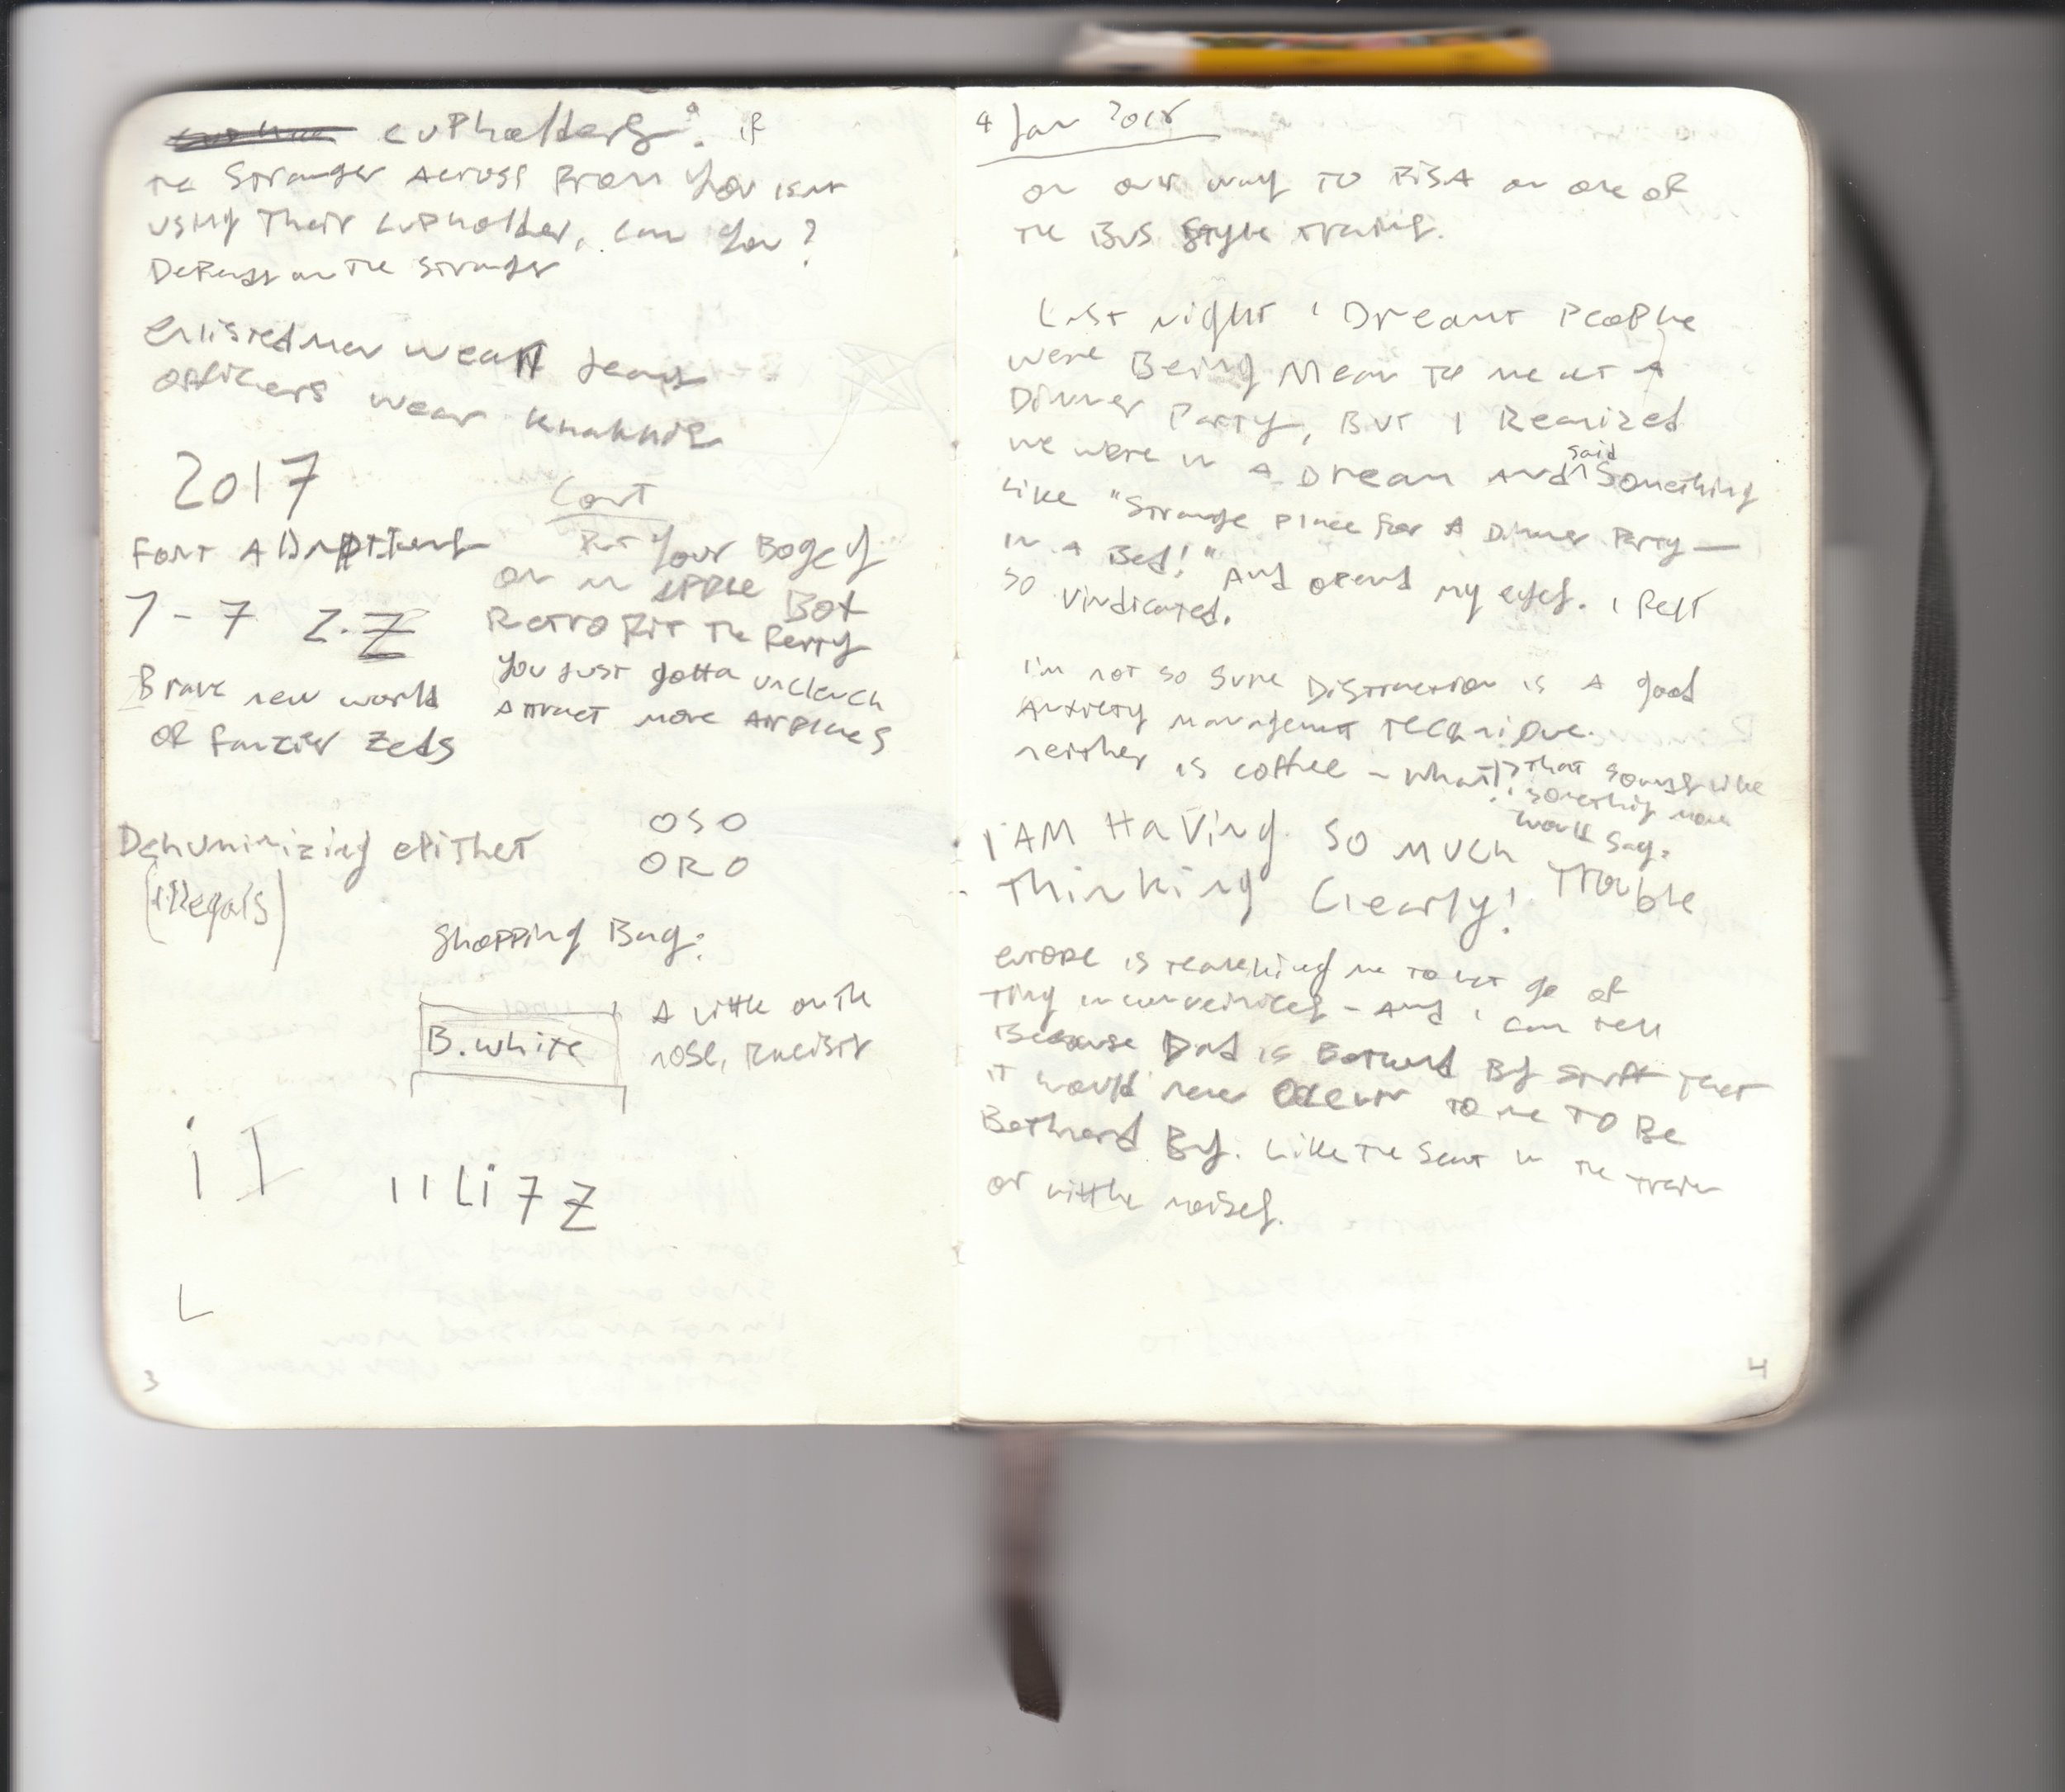 cupholders: if
the stranger across from you isnt
using their cupholder, can you?
Depends on the stranger
enlisted men wear jeans
officers wear khakhis
2017
Font Adaptions
7-7 Z.Z
Brave new world
of fancier zeds
Cont
Put your Bogey
on an apple Box
Retro fit the Ferry
you just gotta unclench
attract more airplanes
Dehuminizing epithet
(illegals)
OSO
ORO
Shopping Bag:
B. white
A little on the
nose, racists
i I
I I L i 7 Z
L
3
4 Jan 2018
on our way to PISA on one of
the Bus style trains.
Last night I Dreamt people
were Being Mean to me at a
Dinner Party, But I Realized
we were in a Dream and said something
like "Strange place for a Dinner Party—
in a Bed!" and opened my eyes. I felt
so vindicated.
I'm not so sure Distraction is a good
Anxiety management technique.
neither is coffee - what!?
That sounds like
something mom
would say.
I AM HAVING SO MUCH Trouble
Thinking Clearly!
europe is teaching me to let go of
tiny inconveinices - and I can tell
Because Dad is Bothered By stuff that
it would never occur to me TO BE
Bothered By. Like the seat in the train
or little noises.
4